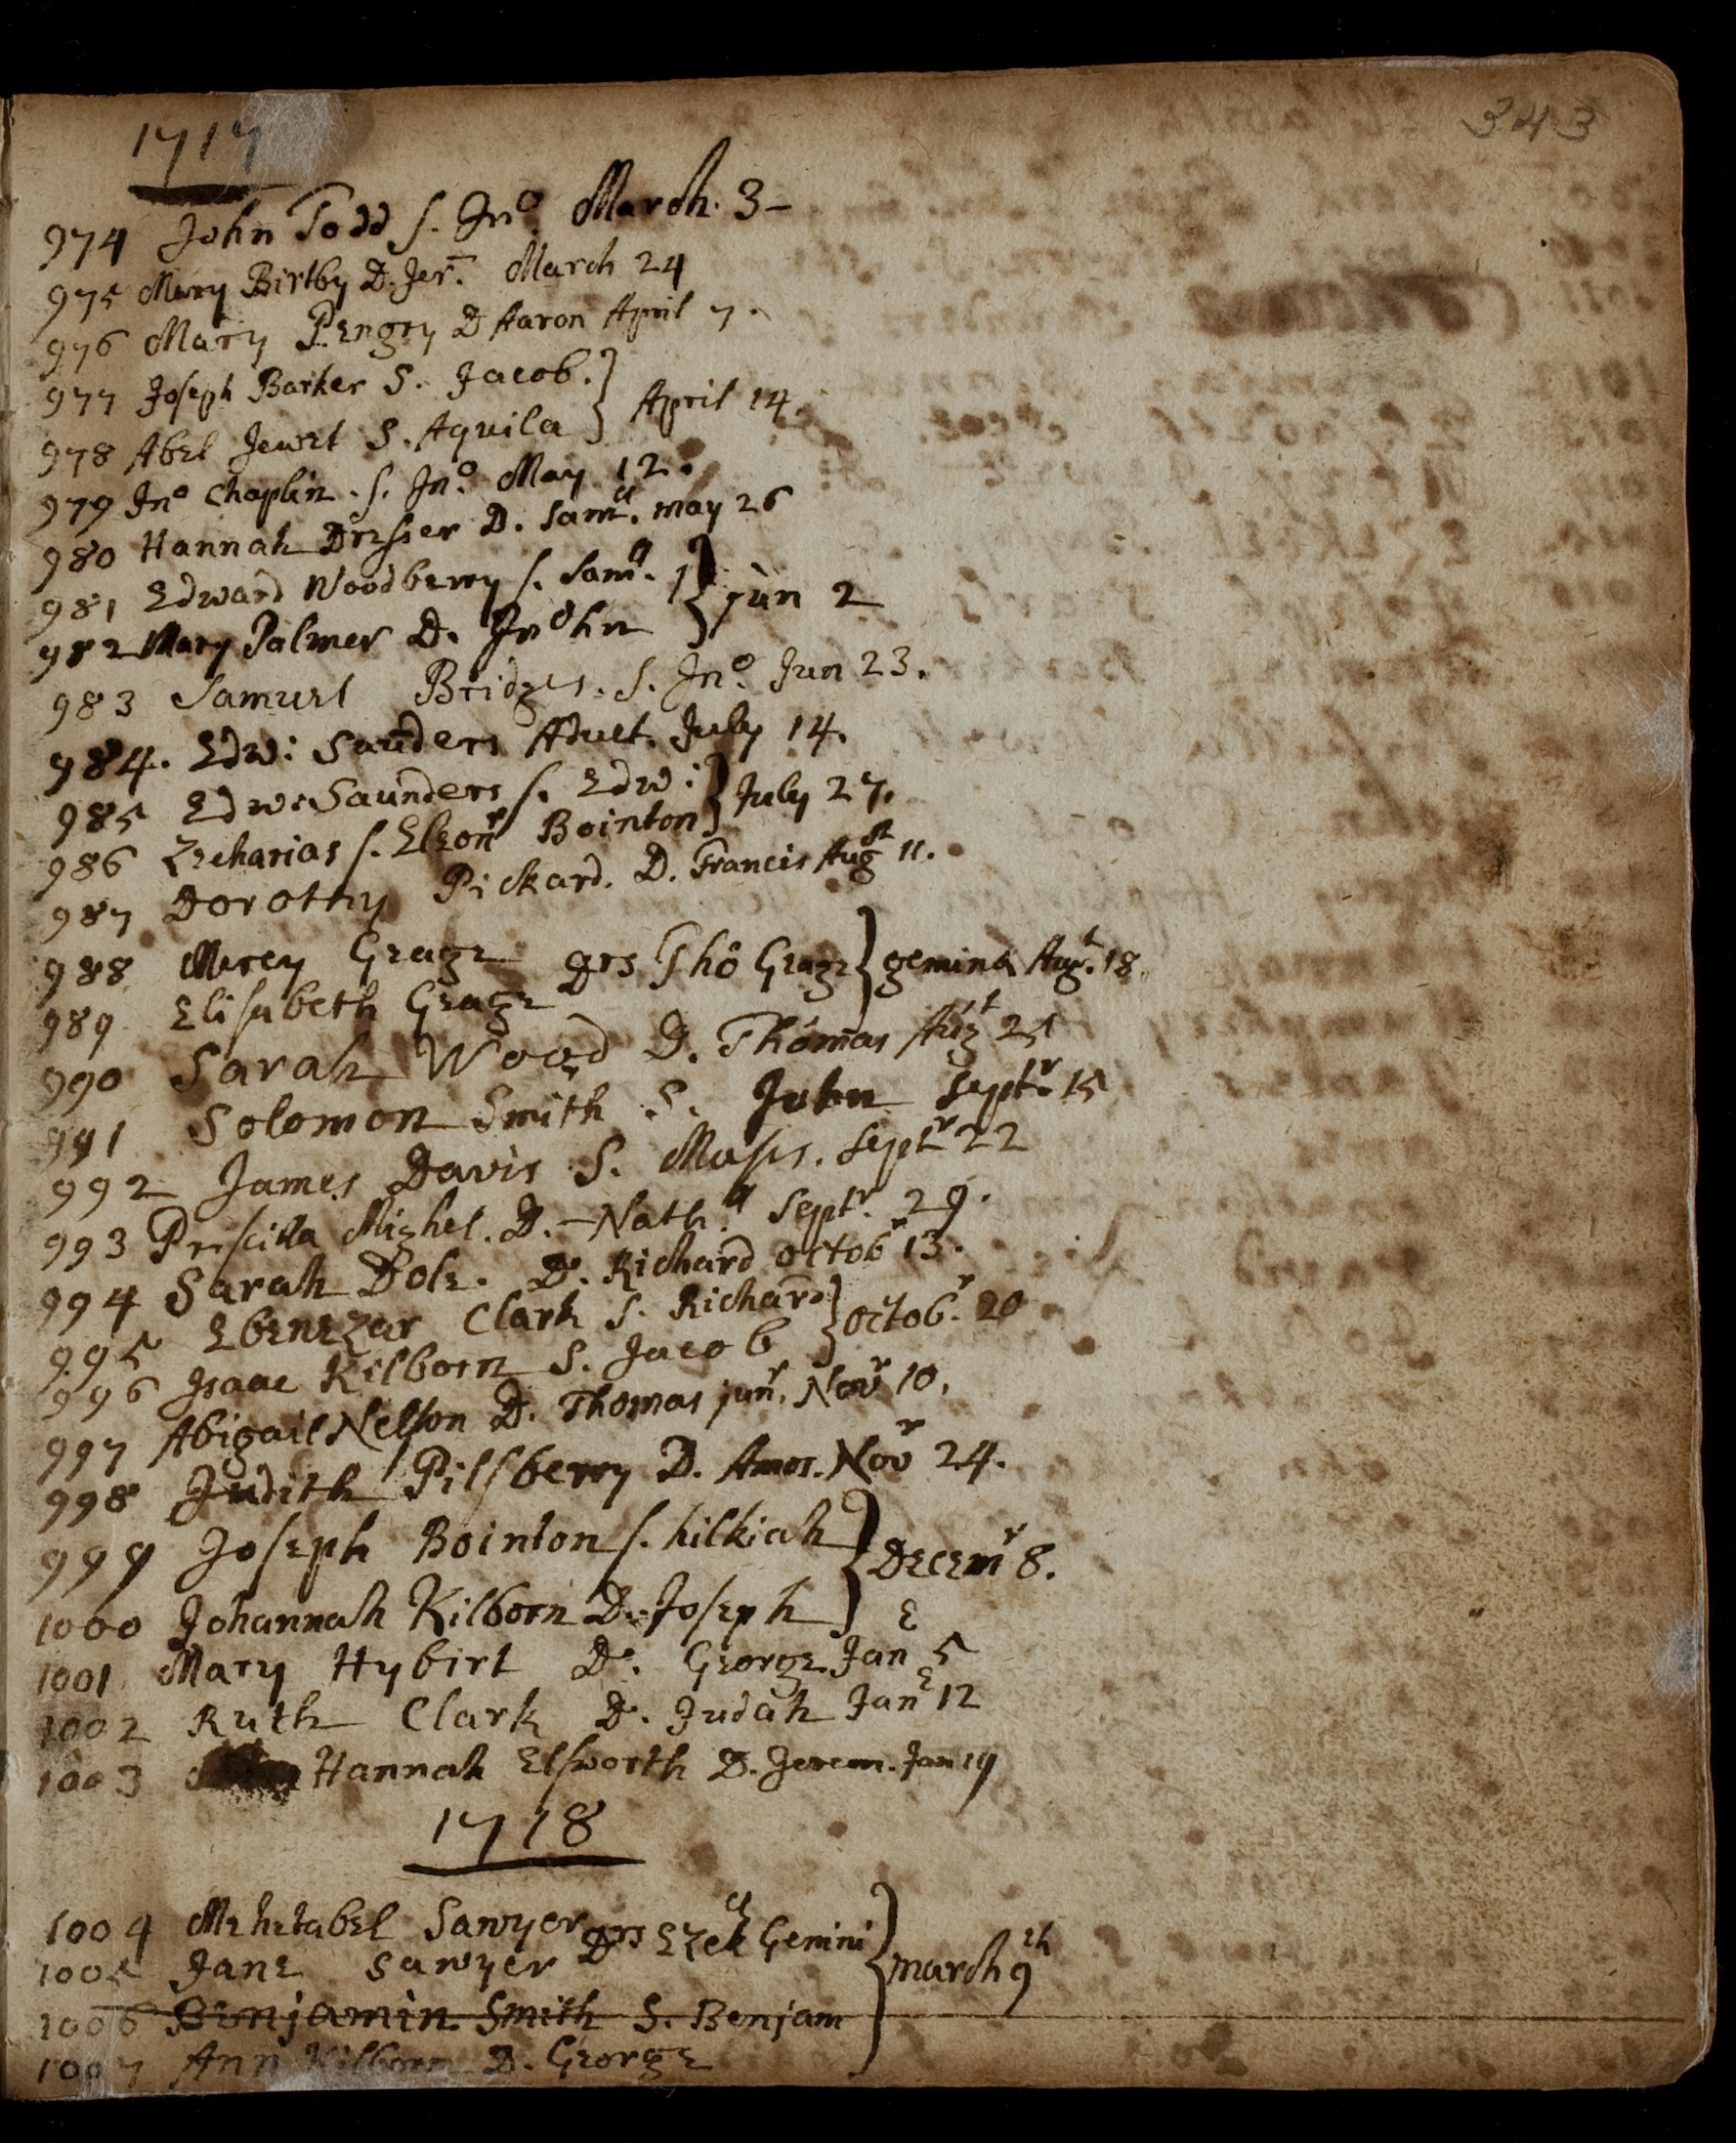 343
1717
974 John Todd s. Jno. March. 3-
975 Mary Birtby D. Jer. March 24
976 Mary Pengry D Aaron April 7.
977 Joseph Barker S. Jacob. } April 14.
978 Abel Jewet S. Aquila
979 Jno Chaplin. s. Jno. May 12.
980 Hannah Dresser D. Samll. may 26
981 Edward Woodberry s. Samll. } jun 2
982 Mary Palmer D. Jnohn
983 Samuel Bridges. S. Jno. Jun 23.
984. Edw: Saunders Adult. July 14.
985 Edw: Saunders s. Edw: } July 27.
986 Zecharias s. Eleonr Bointon
987 Dorothy Pickard. D. Francis Augst 11.
988 Mercy Geage Drs Tho Geage } gemina Augt. 18.
989 Elisabeth Geage
990 Sarah Wood D. Thomas Augt 25
991 Solomon Smith S. John Septr 15
992 James Davis S. Moses. Septr 22
993 Priscilla Mighel. D. Nathll Septr. 29.
994 Sarah Dole. D. Richard octobr 13.
995 Ebenezar Clark S. Richard } octobr. 20
996 Isaac Kilborn S. Jacob
997 Abigail Nelson D. Thomas junr. Novr 10.
998 Judith Pilsberry D. Amos. Novr 24.
999 Joseph Bointon s. hilkiah } Decemr 8.
1000 Johannah Kilborn D. Joseph
1001 Mary Hybirt D. George Jane 5
1002 Ruth Clark D. Judah Jane 12
1003 Hannah Elsworth D. Jerem. Jan 19
1718
1004 Mehetabel Sawyer Drs Ezekll Gemini } march 9th
1005 Jane Sawyer
1006 Benjamin Smith S. Benjam
1007 Ann Kilborn D. George